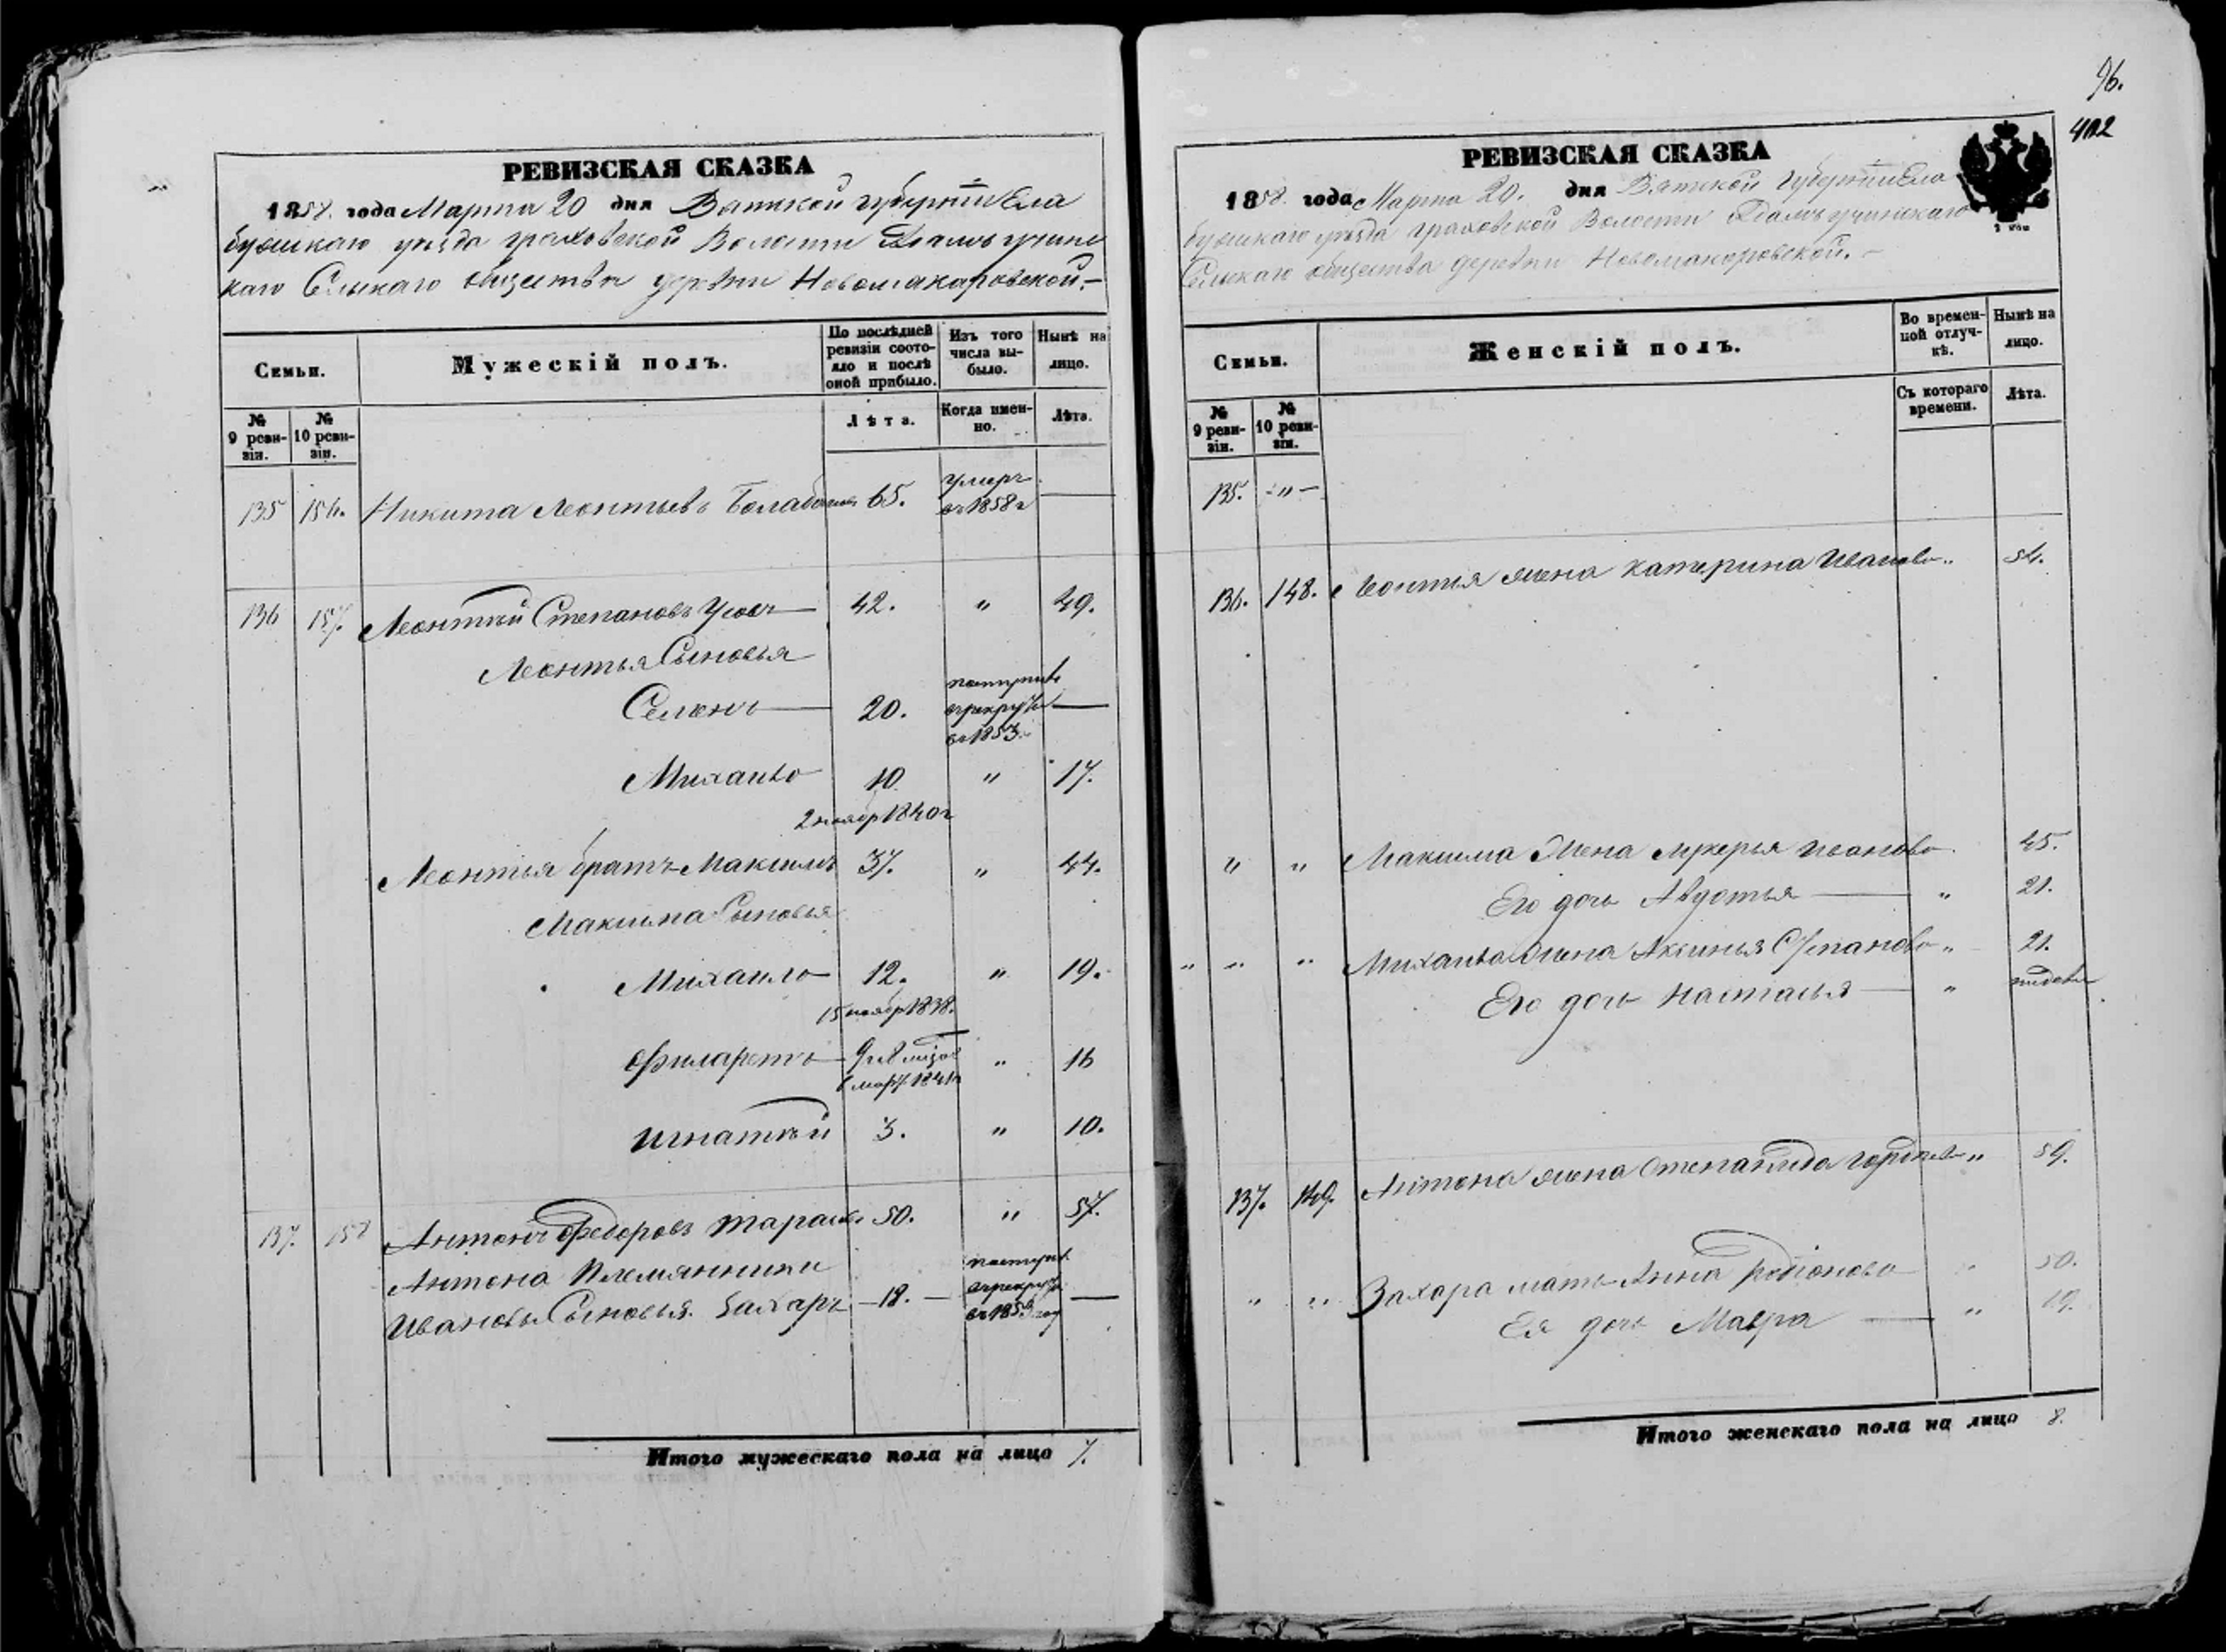 РЕВИЗСКАЯ СКАЗКА
1858. года Марта 20 дня Вятской губерніи Ела
бужскаго уѣзда граховской Волости
каго Сельскаго общества деревни Новомакаровской.–
Семьи.
Мужескій полъ.
По послѣдней ревизіи состояло и послѣ оной прибыло.
Изъ того числа выбыло.
Нынѣ на лицо.
№ 9 ревизіи.
№ 10 ревизіи.
Лѣта.
Когда именно.
Лѣта.
135 156. Никита Леонтьевъ 65. умеръ въ 1858 г —
136 157. Леонтій Степановъ 42. " 49.
Леонтья Сыновья
Семенъ — 20. въ рекруты въ 1853. —
Михайло 10. " 17.
2 ноябр 1840 г
Леонтья братъ Максимъ 37. " 44.
Максима Сыновья
Михайло 12. " 19.
15 ноябр 1838.
Филаретъ — 9 " 16
6 март 1841 г
Игнатій 3. " 10.
137. 158 Антонъ Федоровъ 50. " 57.
Антона Племянники
Ивановы Сыновья. Захаръ — 18. — въ рекруты —
Итого мужескаго пола на лицо 7.
96.
402
РЕВИЗСКАЯ СКАЗКА
1858. года Марта 20. дня Вятской губерніи Ела
бужскаго уѣзда граховской Волости
Сельскаго общества деревни Новомакаровской.–
Семьи.
Женскій полъ.
Во временной отлучкѣ.
Нынѣ на лицо.
№ 9 ревизіи.
№ 10 ревизіи.
Съ котораго времени.
Лѣта.
135. -"-
136. 148. Леонтія жена Катерина Иванова " 54.
" " Максима Жена Лукерья Иванова 45.
Его дочь Авдотья — " 21.
" " " Михайла Жена Аксинья Степанова " 21.
Его дочь Настасья — "
137. 149. Антона жена Степанида "  59.
" " Захара мать Анна Родіонова " 50.
Ея дочь Мавра — " 19.
Итого женскаго пола на лицо 8.